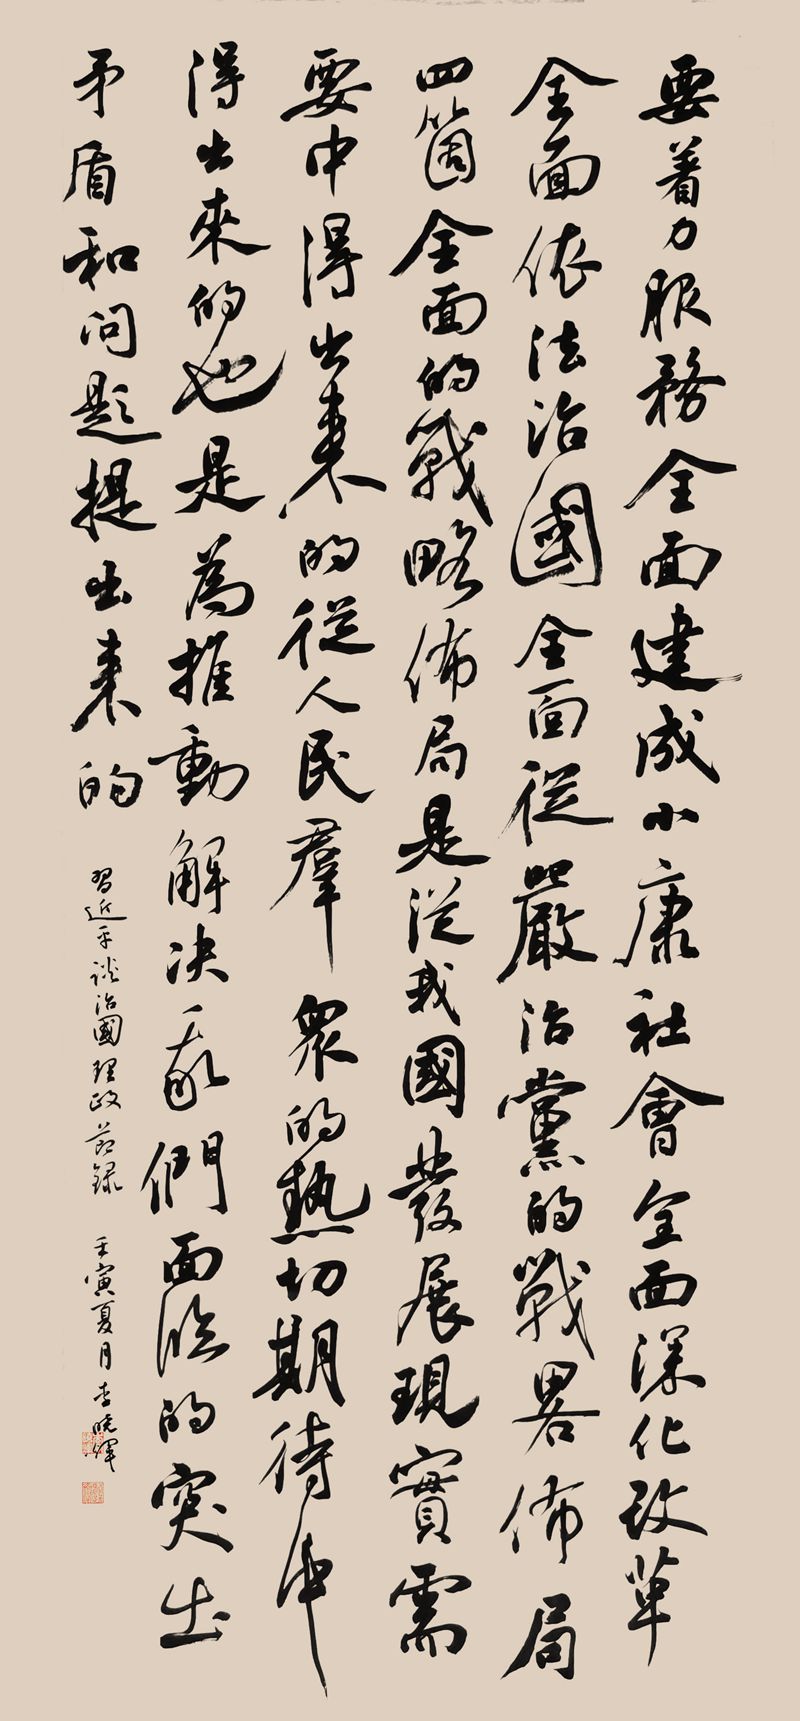 要着力服務全面建成小康社會全面深化改革
全面依法治國全面從嚴治黨的戰畧佈局
四箇全面的戰略佈局是從我國發展現實需
要中得出來的從人民羣衆的熱切期待中
得出來的也是為推動解決我們面臨的突出
矛盾和问题提出來的
習近平談治國理政節録
壬寅夏月李曉輝